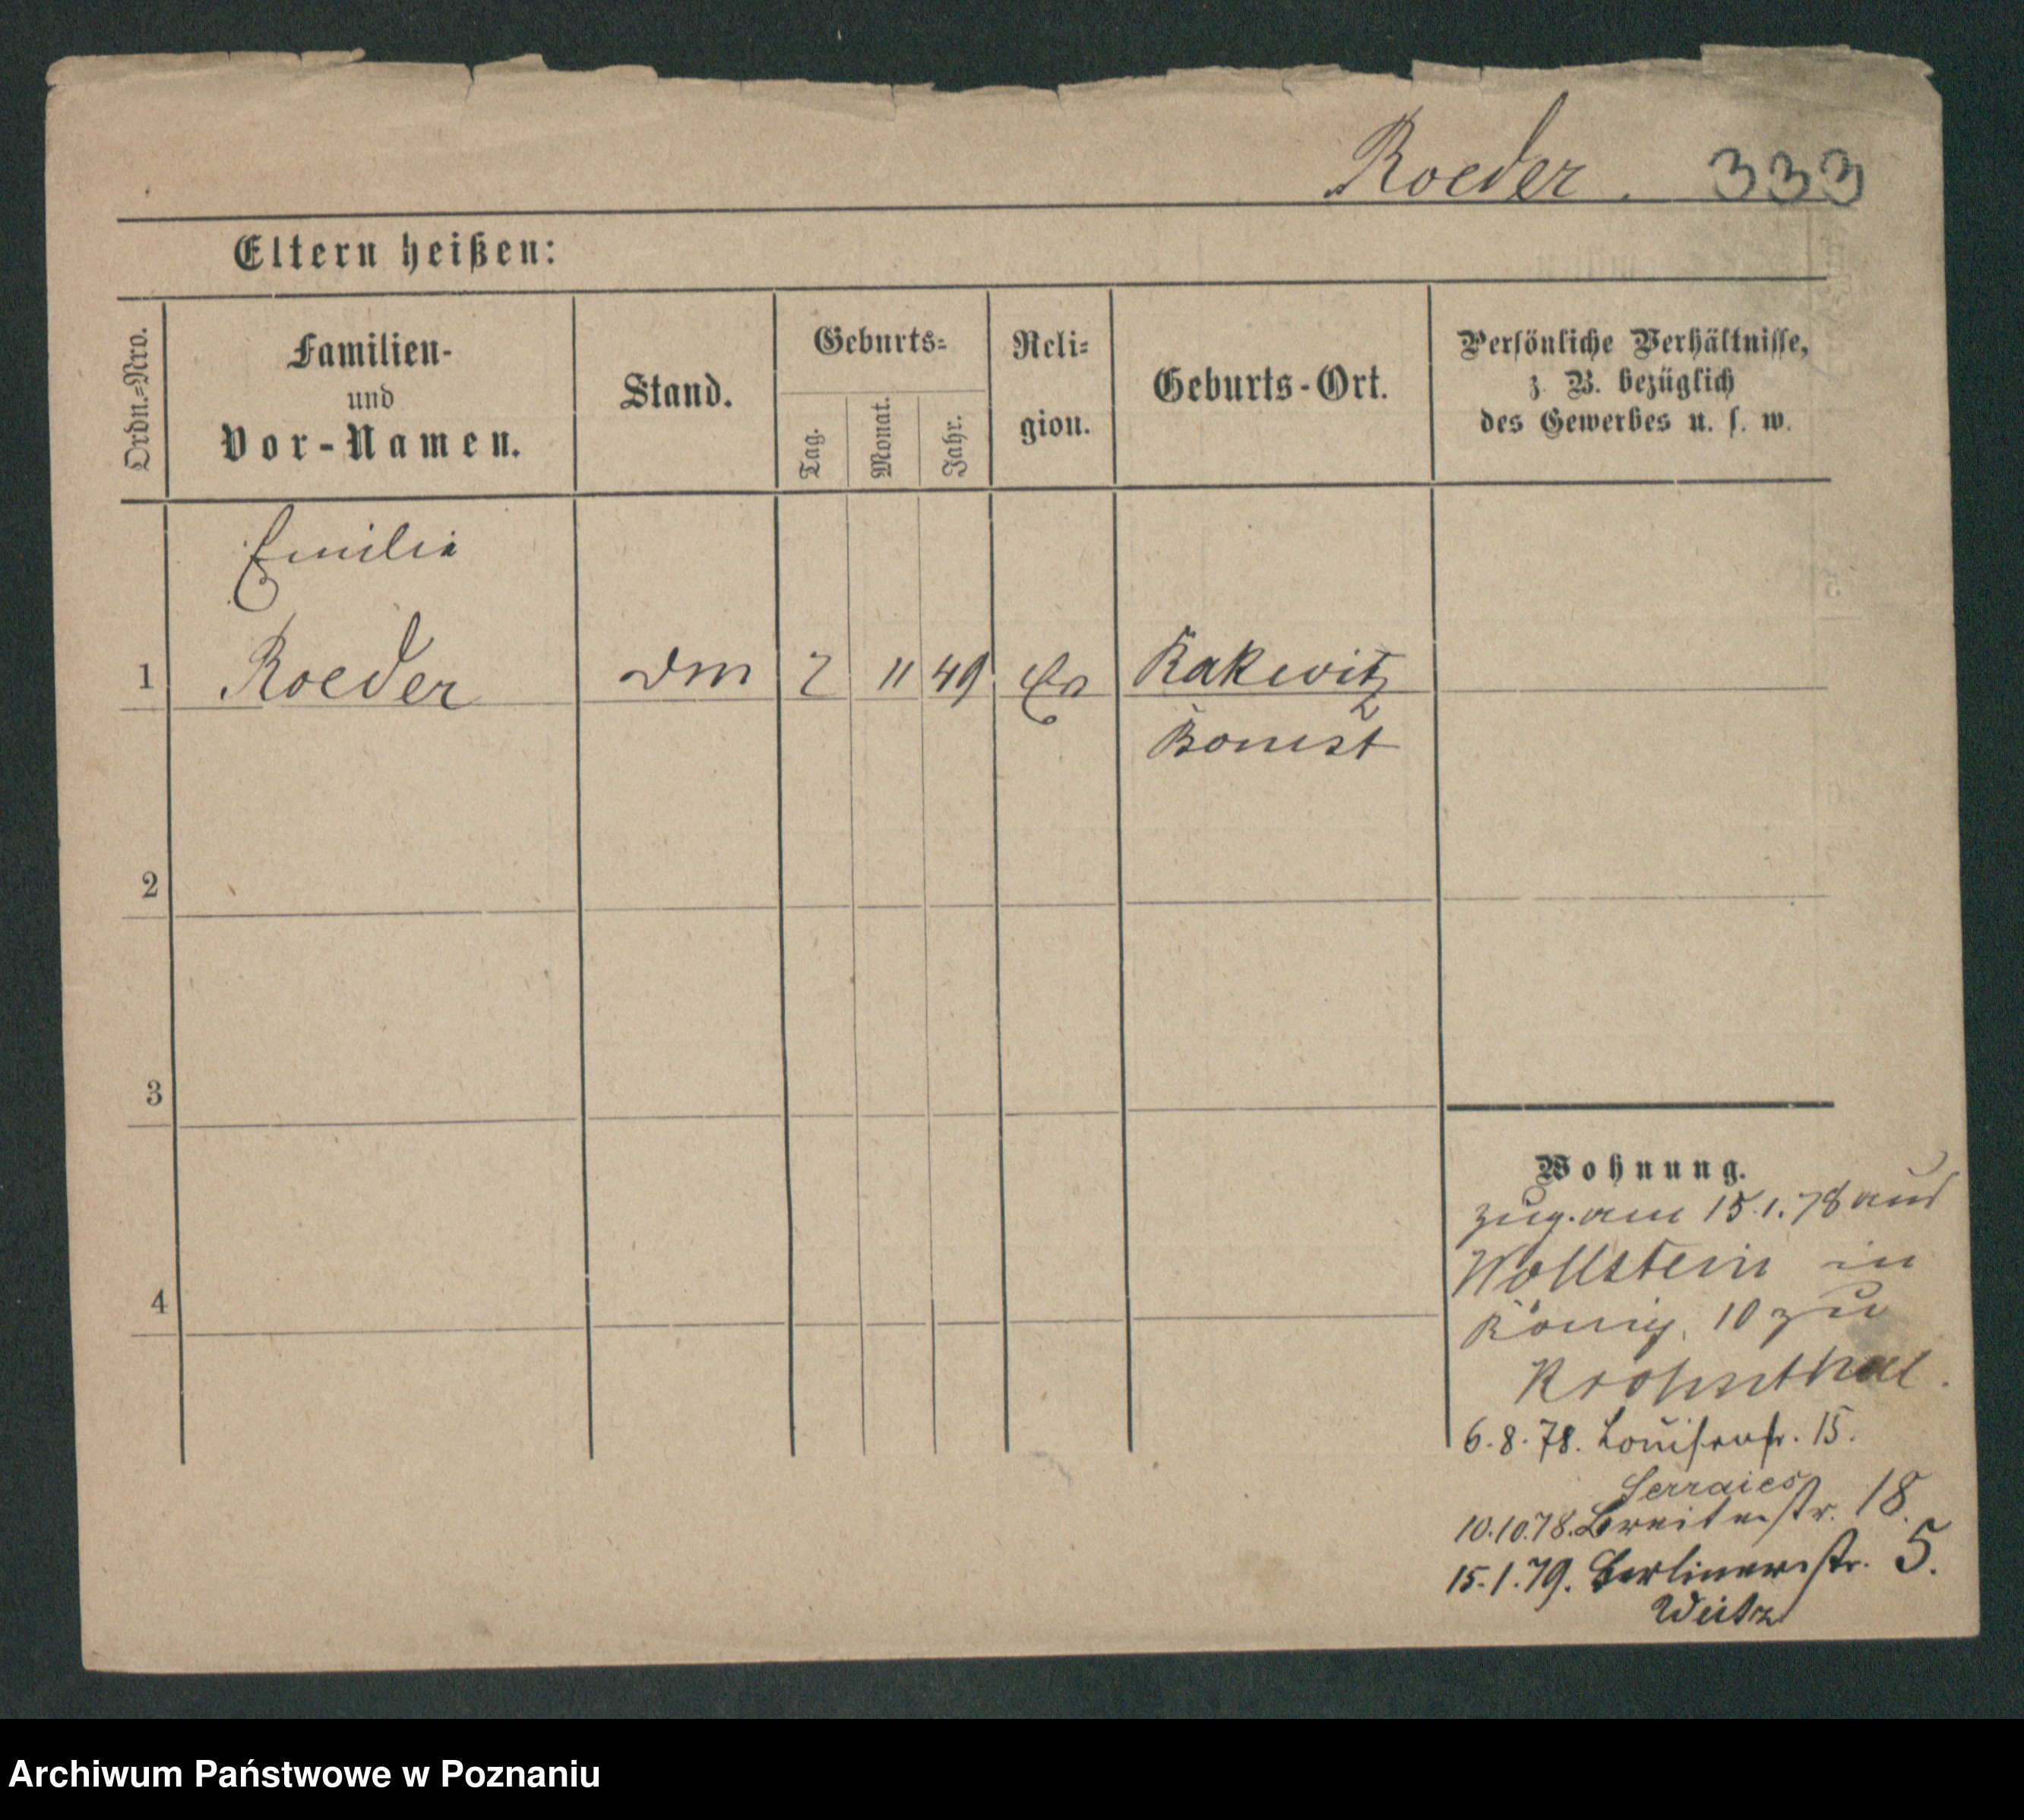 Roeder. 333
Eltern heißen:
Ordn.=Nro.
Familien-
und
Vor-Namen.
Stand.
Geburts=
Tag.
Monat.
Jahr.
Reli=
gion.
Geburts-Ort.
Persönliche Verhältnisse,
z. B. bezüglich
des Gewerbes u. s. w.
Emilie
1 Roeder Dm 2 11 49 Ev Rakwitz
Bomst
2
3
4
Wohnung.
zug. am 15.1.78 aus
Wollstein in
König. 10 zu
Krohnthal.
6.8.78. Louisenstr. 15.
10.10.78. Breitestr. 18.
15.1.79. Berlinerstr. 5.
Archiwum Państwowe w Poznaniu